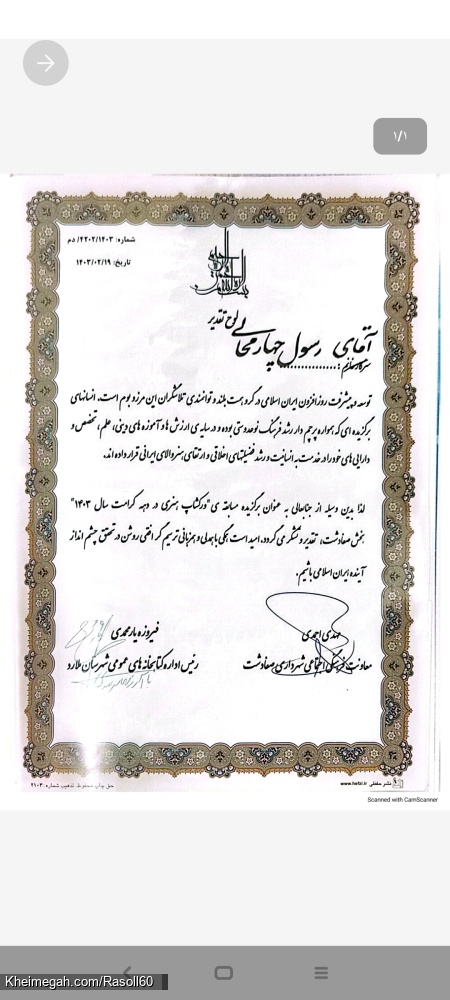 ۱/۱
شماره: ۴۲۰۲/۱۴۰۳/ دم
تاریخ: ۱۴۰۳/۰۲/۱۹
لوح تقدیر
آقای رسول چهارمحالی
سرکار خانم :
توسعه و پیشرفت روزافزون ایران اسلامی در گرو همت بلند و توانمندی تلاشگران این مرز و بوم است. انسانهای
برگزیده ای که همواره پرچم دار رشد فرهنگ نوعدوستی بوده و در سایه ی ارزش ها و آموزه های دینی، علم، تخصص و
دارایی های خود را در خدمت به انسانیت و رشد فضیلتهای اخلاقی و ارتقای هنر والای ایرانی قرار داده اند.
لذا بدین وسیله از جنابعالی به عنوان برگزیده مسابقه ی "ورکشاپ هنری در دهه کرامت سال ۱۴۰۳"
بخش صفادشت، تقدیر و تشکر می گردد. امید است همگی با همدلی و همزبانی ترسیم گر افقی روشن در تحقق چشم انداز
آینده ایران اسلامی باشیم.
مهدی احمدی
معاونت فرهنگی اجتماعی شهرداری صفادشت
فیروزه یارمحمدی
رئیس اداره کتابخانه های عمومی شهرستان ملارد
نشر حفظی www.hefzi.ir
حق چاپ محفوظ. تذهیب شماره: ۲۱۰۳
Scanned with CamScanner
Kheimegah.com/Rasoll60